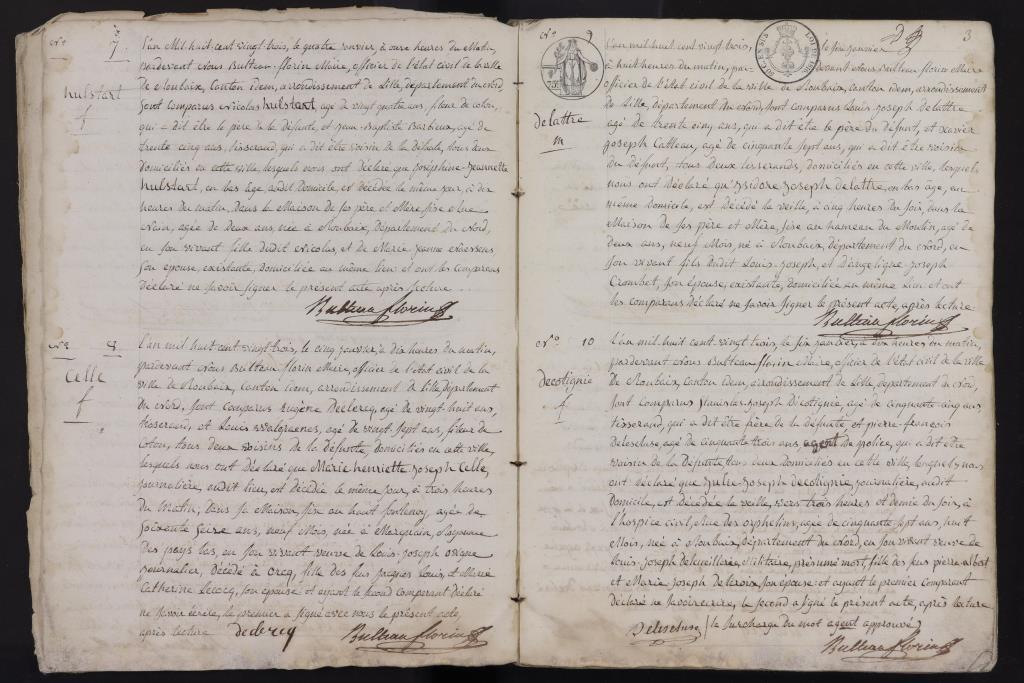 N° 7
hulstart
f
L'an mil huit cent vingt trois, le quatre janvier, à onze heures du matin,
pardevant nous Bulteau florin Maire, officier de l'état civil de la ville
de Roubaix, Canton idem, arrondissement de Lille, département du nord
sont comparus nicolas hulstart, age de vingt quatre ans, fileur de coton,
qui a dit être le père de la défunte, et Jean-Baptiste Barbieux, agé de
trente cinq ans, tisserand, qui a dit être voisin de la défunte, tous deux
Domiciliés en cette ville, lesquels nous ont déclaré que Joséphine Jeannette
hulstart, en bas age, audit Domicile, est décédée le même jour, à dix
heures du matin, dans la Maison de ses père et mère, sise
agée de deux ans, née à Roubaix, Département du nord,
en son vivant fille dudit nicolas, et de Marie Jeanne
son épouse, existante, domiciliée au même lieu et ont les comparans
Déclaré ne savoir signer le présent acte après lecture.
Bulteau florin
N° 8
Celle
f
L'an mil huit cent vingt trois, le cinq janvier, à dix heures du matin,
pardevant nous Bulteau florin Maire, officier de l'état civil de la
ville de Roubaix, Canton idem, arrondissement de Lille, Département
du nord, sont comparus Eugène Declercq, agé de vingt huit ans,
tisserand, et Louis, agé de vingt sept ans, fileur de
coton, tous deux voisins de la défunte, domiciliés en cette ville,
lesquels nous ont déclaré que Marie henriette Joseph Celle,
journalière, audit lieu, est Décédée le même jour, à trois heures
du matin, dans sa Maison, sise au haut fontenoy, agée de
soixante seize ans, neuf mois, née à Marquain, Royaume
Des pays bas, en son vivant veuve de Louis-Joseph
journalier, décédé à Orcq, fille des feu Jacques Louis, et Marie
Catherine Lecocq, son épouse et ayant le second comparant déclaré
ne savoir écrire, le premier a signé avec nous le présent acte,
après lecture
declercq
Bulteau florin
3
N° 9
delattre
m
L'an mil huit cent vingt trois, le six janvier
à huit heures du matin, pardevant nous Bulteau florin Maire
officier de l'état civil de la ville de Roubaix, canton idem, arrondissement
de Lille, département du nord, sont comparus Louis Joseph delattre
agé de trente cinq ans, qui a dit être le père du défunt, et xavier
Joseph Catteau, agé de cinquante sept ans, qui a dit être voisin
du défunt, tous deux tisserands, domiciliés en cette ville, lesquels
nous ont déclaré qu'Isidore Joseph delattre, en bas âge, au
même Domicile, est décédé la veille, à cinq heures du soir, dans la
Maison de ses père et mère, sise au hameau du Moulin, agé de
deux ans, neuf mois, né à Roubaix, département du nord, en
son vivant fils dudit Louis-Joseph, et d'angelique-Joseph
Crombet, son épouse, existante, domiciliée au même lieu et ont
les comparans déclaré ne savoir signer le présent acte, après lecture
Bulteau florin
N° 10
decotignie
f
L'an mil huit cent vingt trois, le six janvier, à dix heures du matin,
pardevant nous Bulteau florin Maire, officier de l'état civil de la ville
de Roubaix, Canton idem, arrondissement de Lille, Département du nord,
sont comparus Stanislas-Joseph Décotignie, agé de cinquante cinq ans,
tisserand, qui a dit être frère de la défunte, et pierre-françois
Delescluse, agé de cinquante trois ans, agent de police, qui a dit être
voisin de la Défunte, tous deux Domiciliés en cette ville, lesquels nous
ont déclaré que Julie-Joseph decotignie, journalière, audit
domicile, est décédée la veille, vers trois heures et demie du soir, à
l'hospice civil, rue des orphelins, agée de cinquante sept ans, huit
mois, née à Roubaix, Département du nord, en son vivant veuve de
Louis-Joseph, militaire, présumé mort, fille des feu pierre albert
et Marie Joseph Delcroix, son épouse, et ayant le premier comparant
Déclaré ne savoir écrire, le second a signé le présent acte, après lecture
Delescluse (la surcharge du mot agent approuvé)
Bulteau florin